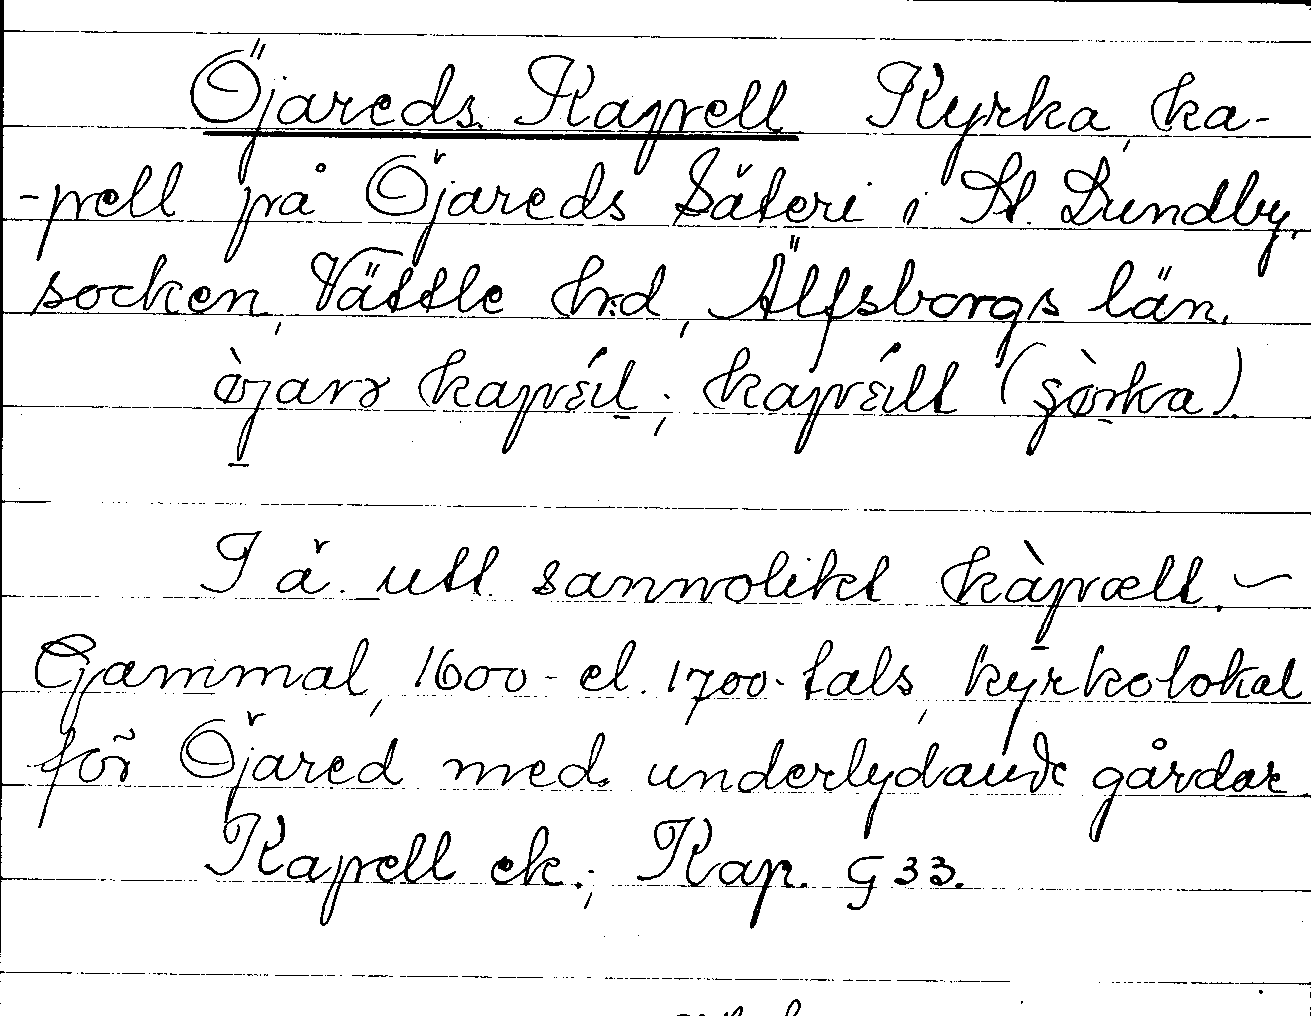 Öjareds Kapell Kyrka, ka-
-pell på Öjareds Säteri i St. Lundby
socken, Vättle hrd, Älfsborgs län.
kapέıl; kapέıll
I ä. utt. sannolikt kàpæll. –
Gammal, 1600- el. 1700-tals, kyrkolokal
för Öjared med underlydande gårdar
Kapell ek.; Kap. G 33.